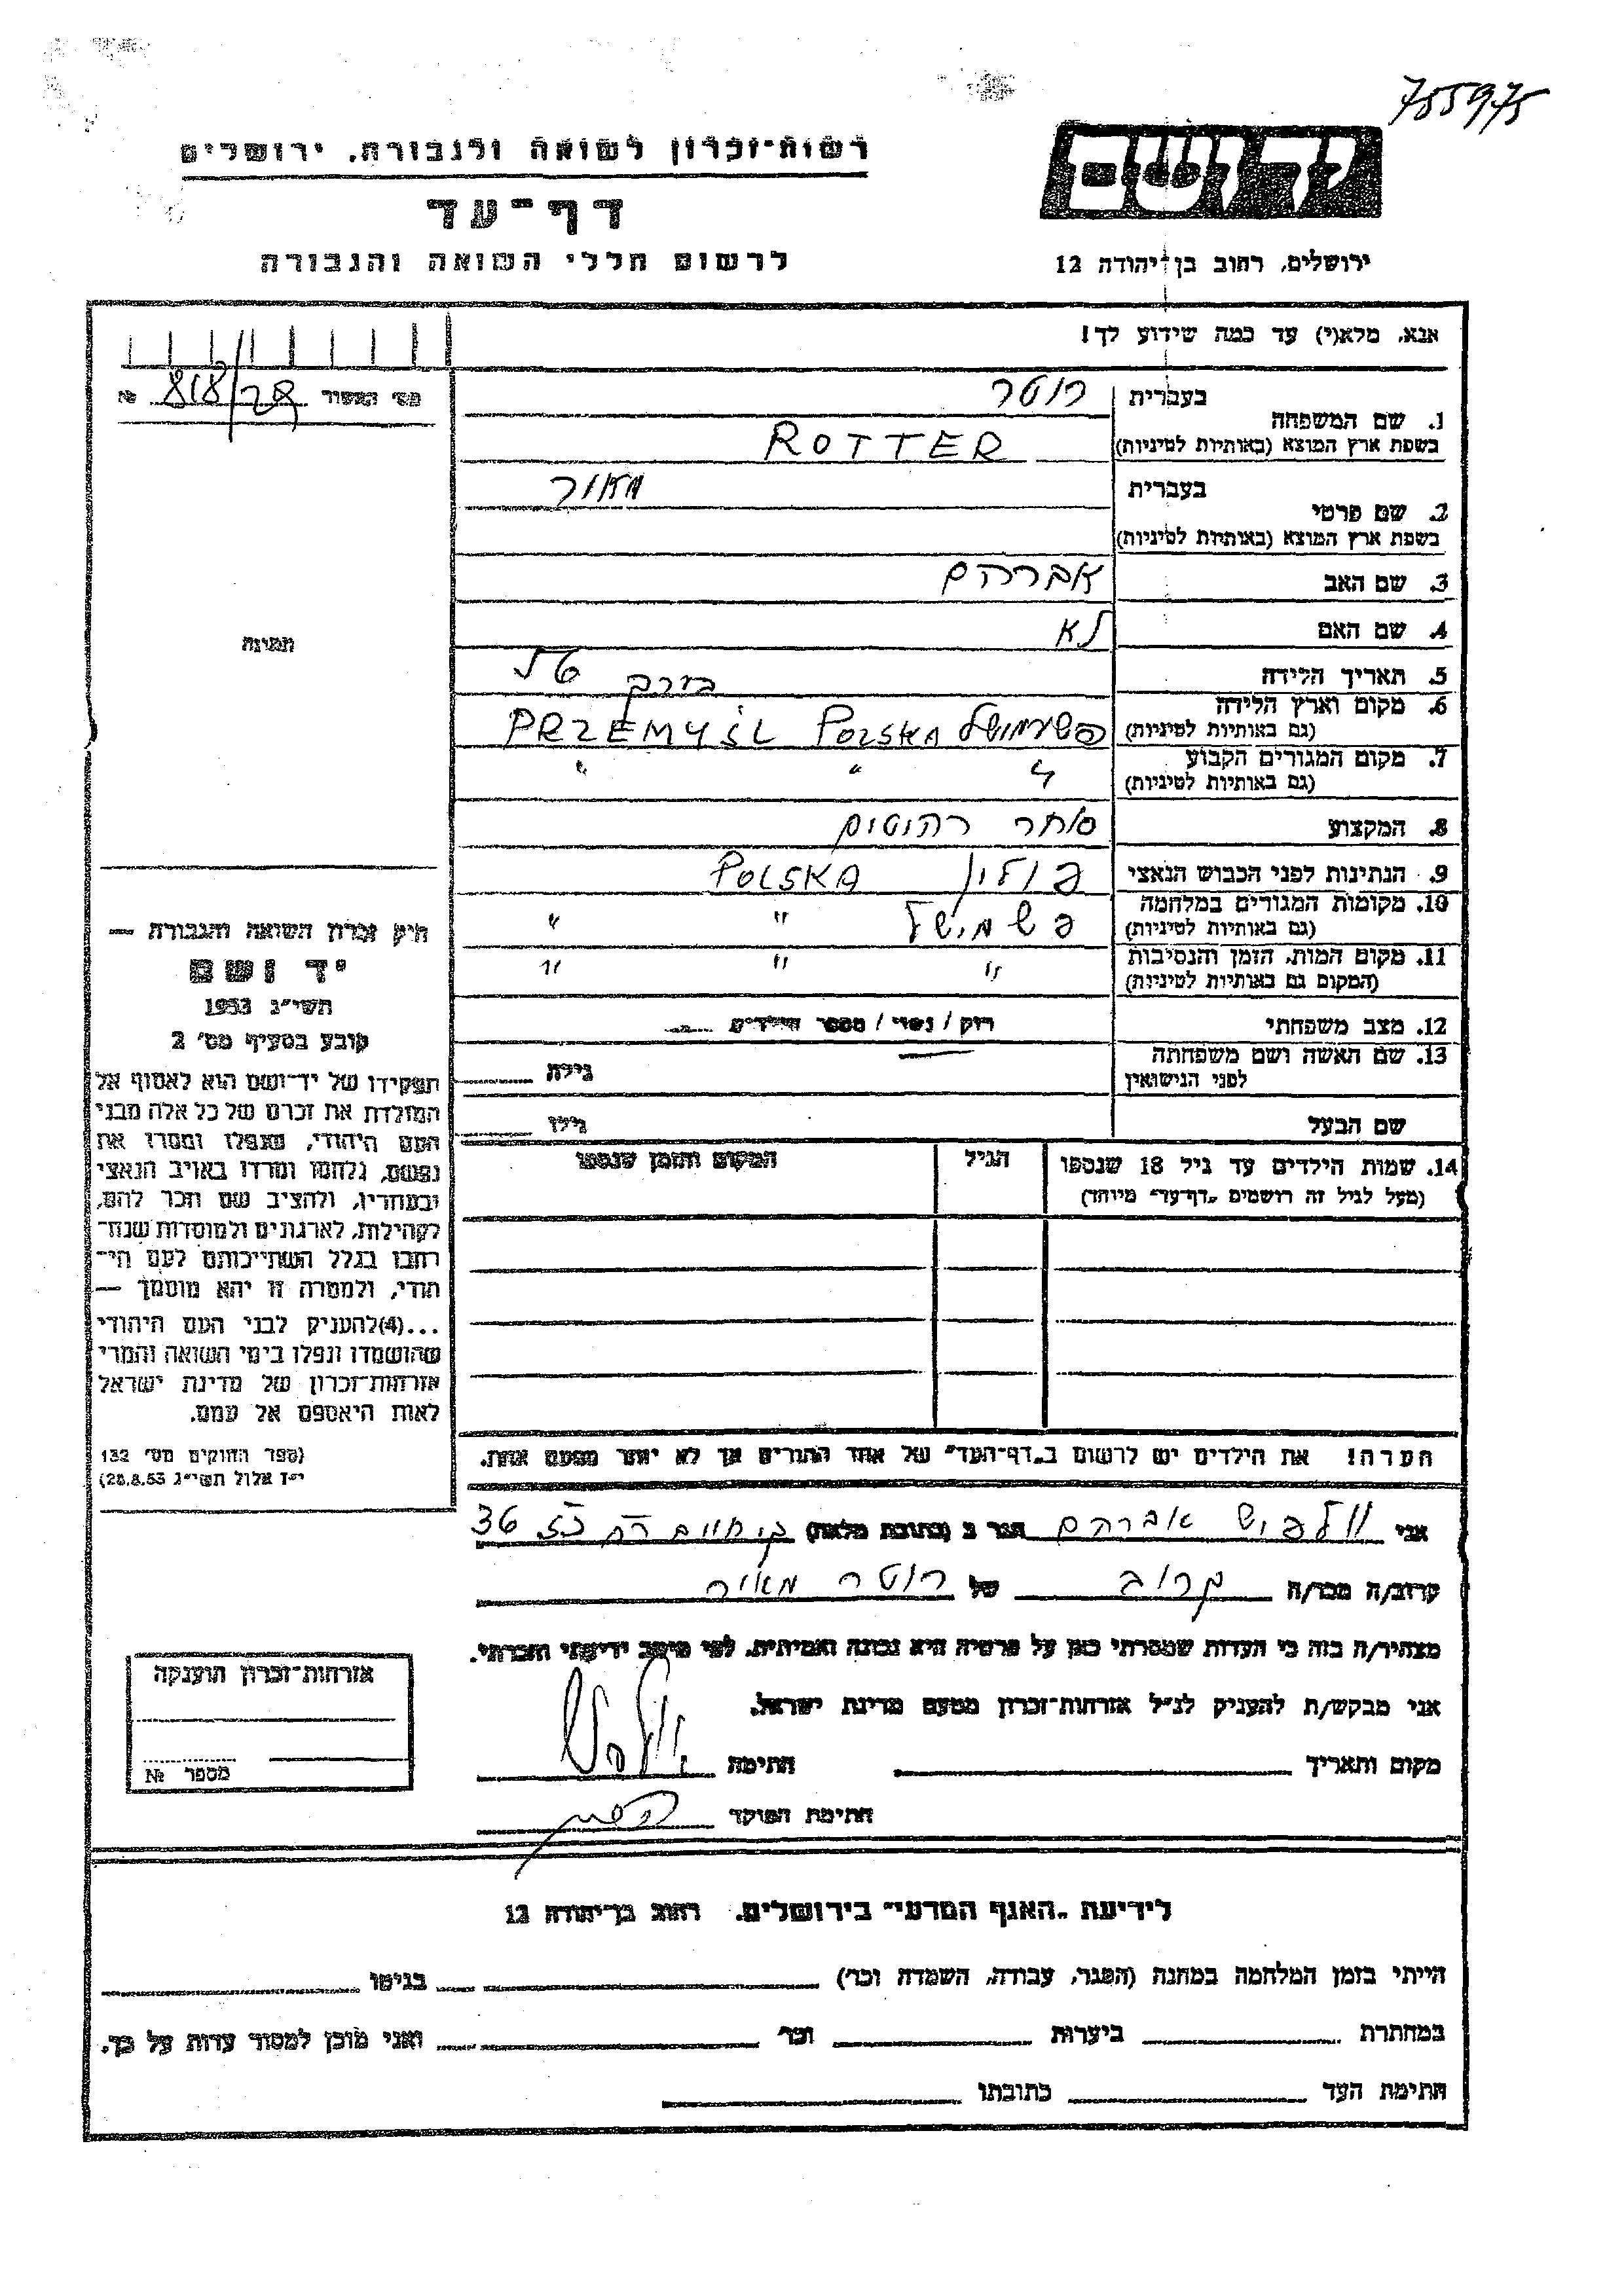 755975
רשות-זכרון לשואה ולגבורה, ירושלים
ידושם
דף-עד
לרשום חללי השואה והגבורה
ירושלים, רחוב בן-יהודה 12
אנא, מלא(י) עד כמה שידוע לך!
מס' המסור 818/29 №
1. שם המשפחה
בעברית רוטר
בשפת ארץ המוצא (באותיות לטיניות) ROTTER
2. שם פרטי
בעברית מאור
בשפת ארץ המוצא (באותיות לטיניות)
3. שם האב אברהם
4. שם האם לא
תמונה
5. תאריך הלידה בערך
6. מקום וארץ הלידה
(גם באותיות לטיניות) פשעמושל POLSKA PRZEMYŚL
7. מקום המגורים הקבוע
(גם באותיות לטיניות) " " "
8. המקצוע סוחר רהיטים
9. הנתינות לפני הכבוש הנאצי פולין POLSKA
10. מקומות המגורים במלחמה
(גם באותיות לטיניות) פשמישל " "
11. מקום המות, הזמן והנסיבות
(המקום גם באותיות לטיניות) " " "
12. מצב משפחתי רוק / נשוי / מספר הילדים
13. שם האשה ושם משפחתה
לפני הנישואין גילה
שם הבעל גילו
14. שמות הילדים עד גיל 18 שנספו הגיל המקום והזמן שנספו
(מעל לגיל זה רושמים "דף-עד" מיוחד)
חוק זכרון השואה והגבורה —
יד ושם
תשי"ג 1953
קובע בסעיף מס' 2
תפקידו של יד-ושם הוא לאסוף אל
המולדת את זכרם של כל אלה מבני
העם היהודי, שנפלו ומסרו את
נפשם, נלחמו ומרדו באויב הנאצי
ובעוזריו, ולהציב שם וזכר להם,
לקהילות, לארגונים ולמוסדות שנח-
רבו בגלל השתייכותם לעם הי-
הודי, ולמטרה זו יהא מוסמך —
...(4)להעניק לבני העם היהודי
שהושמדו ונפלו בימי השואה והמרי
אזרחות-זכרון של מדינת ישראל
לאות היאספם אל עמם.
(ספר החוקים מס' 132
י"ז אלול תשי"ג 28.8.53)
הערה! את הילדים יש לרשום ב"דף-העד" של אחד ההורים אך לא יותר מפעם אחת.
אני וולפיש אברהם הגר ב (כתובת מלאה) בן חיים רמ 36
קרוב/ה מכר/ה קרוב של רוטר מאיר
מצהיר/ה בזה כי העדות שמסרתי כאן על פרטיה היא נכונה ואמיתית, לפי מיטב ידיעתי והכרתי.
אני מבקש/ת להעניק לנ"ל אזרחות-זכרון מטעם מדינת ישראל.
מקום ותאריך חתימה
חתימת הפוקד
אזרחות-זכרון הוענקה
מספר №
לידיעת "האגף המדעי" בירושלים, רחוב בן-יהודה 12
הייתי בזמן המלחמה במחנה (הסגר, עבודה, השמדה וכו') בגיטו
במחתרת ביערות וכו' ואני מוכן למסור עדות על כך.
חתימת העד כתובתו